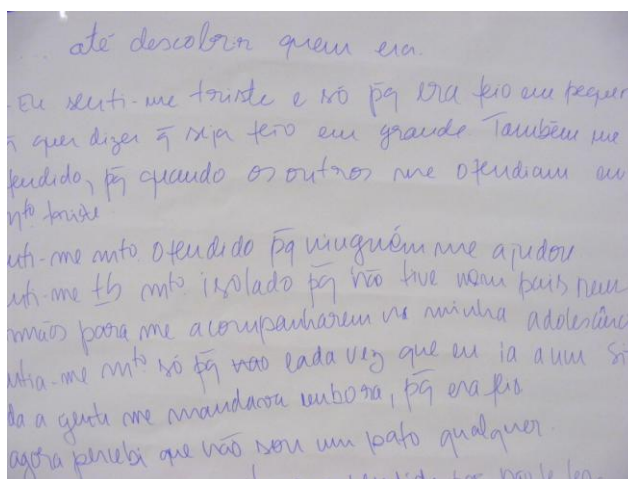 ... até descobrir quem era.
- Eu senti-me triste e só pq era feio em pequen
q quer dizer q seja feio em grande. Também me
fendido, pq quando os outros me ofendiam eu
mto triste.
nti-me mto ofendido pq ninguém me ajudou
nti-me tb mto isolado pq não tive nem pais nem
rmãos para me acompanharem na minha adolescênc
ntia-me mto só pq cada vez que eu ia a um si
da a gente me mandava embora, pq era feio
agora percebi que não sou um pato qualquer.